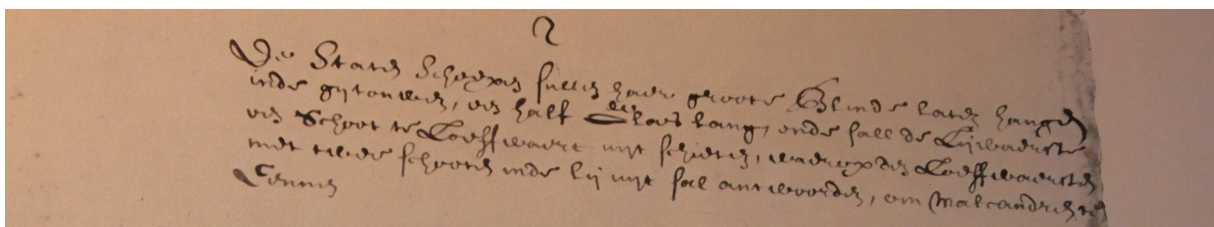 2
De Staten Scheepen sullen haer groote Blinde laten hangen
inde gijtouwen, een half Glas lang, ende sall de Lijwaerste
een Schoot te Loeffwaert uijt schieten, waerop den Loeffwaersten
met twee schooten inde lij uijt sal antwoorden, om malcandren te
Cennen